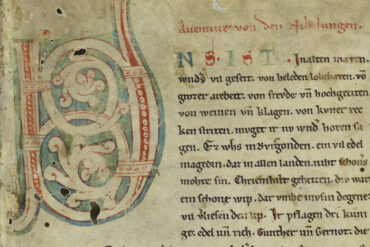 Auenture von den Nibelungen.
NS. IST In alten mæren.
wnders vil geseit. von heleden lobebæren. vñ
grozer arebeit. von frevde vñ hochgeciten
von weinen vñ klagen. von kvner rec
ken striten. mvget ir nv wnder horen sa
gen. Ez whs in Bvrgonden. ein vil edel
magedin. daz in allen landen. niht schoners
mohte sin. Chriemhilt geheizen. div wart
ein schone wip. dar vmbe mvsin degene
vil vliesen den lip. Ir pflagen dri kuni
ge. edel vñ rich. Gunther vñ Gernot. di